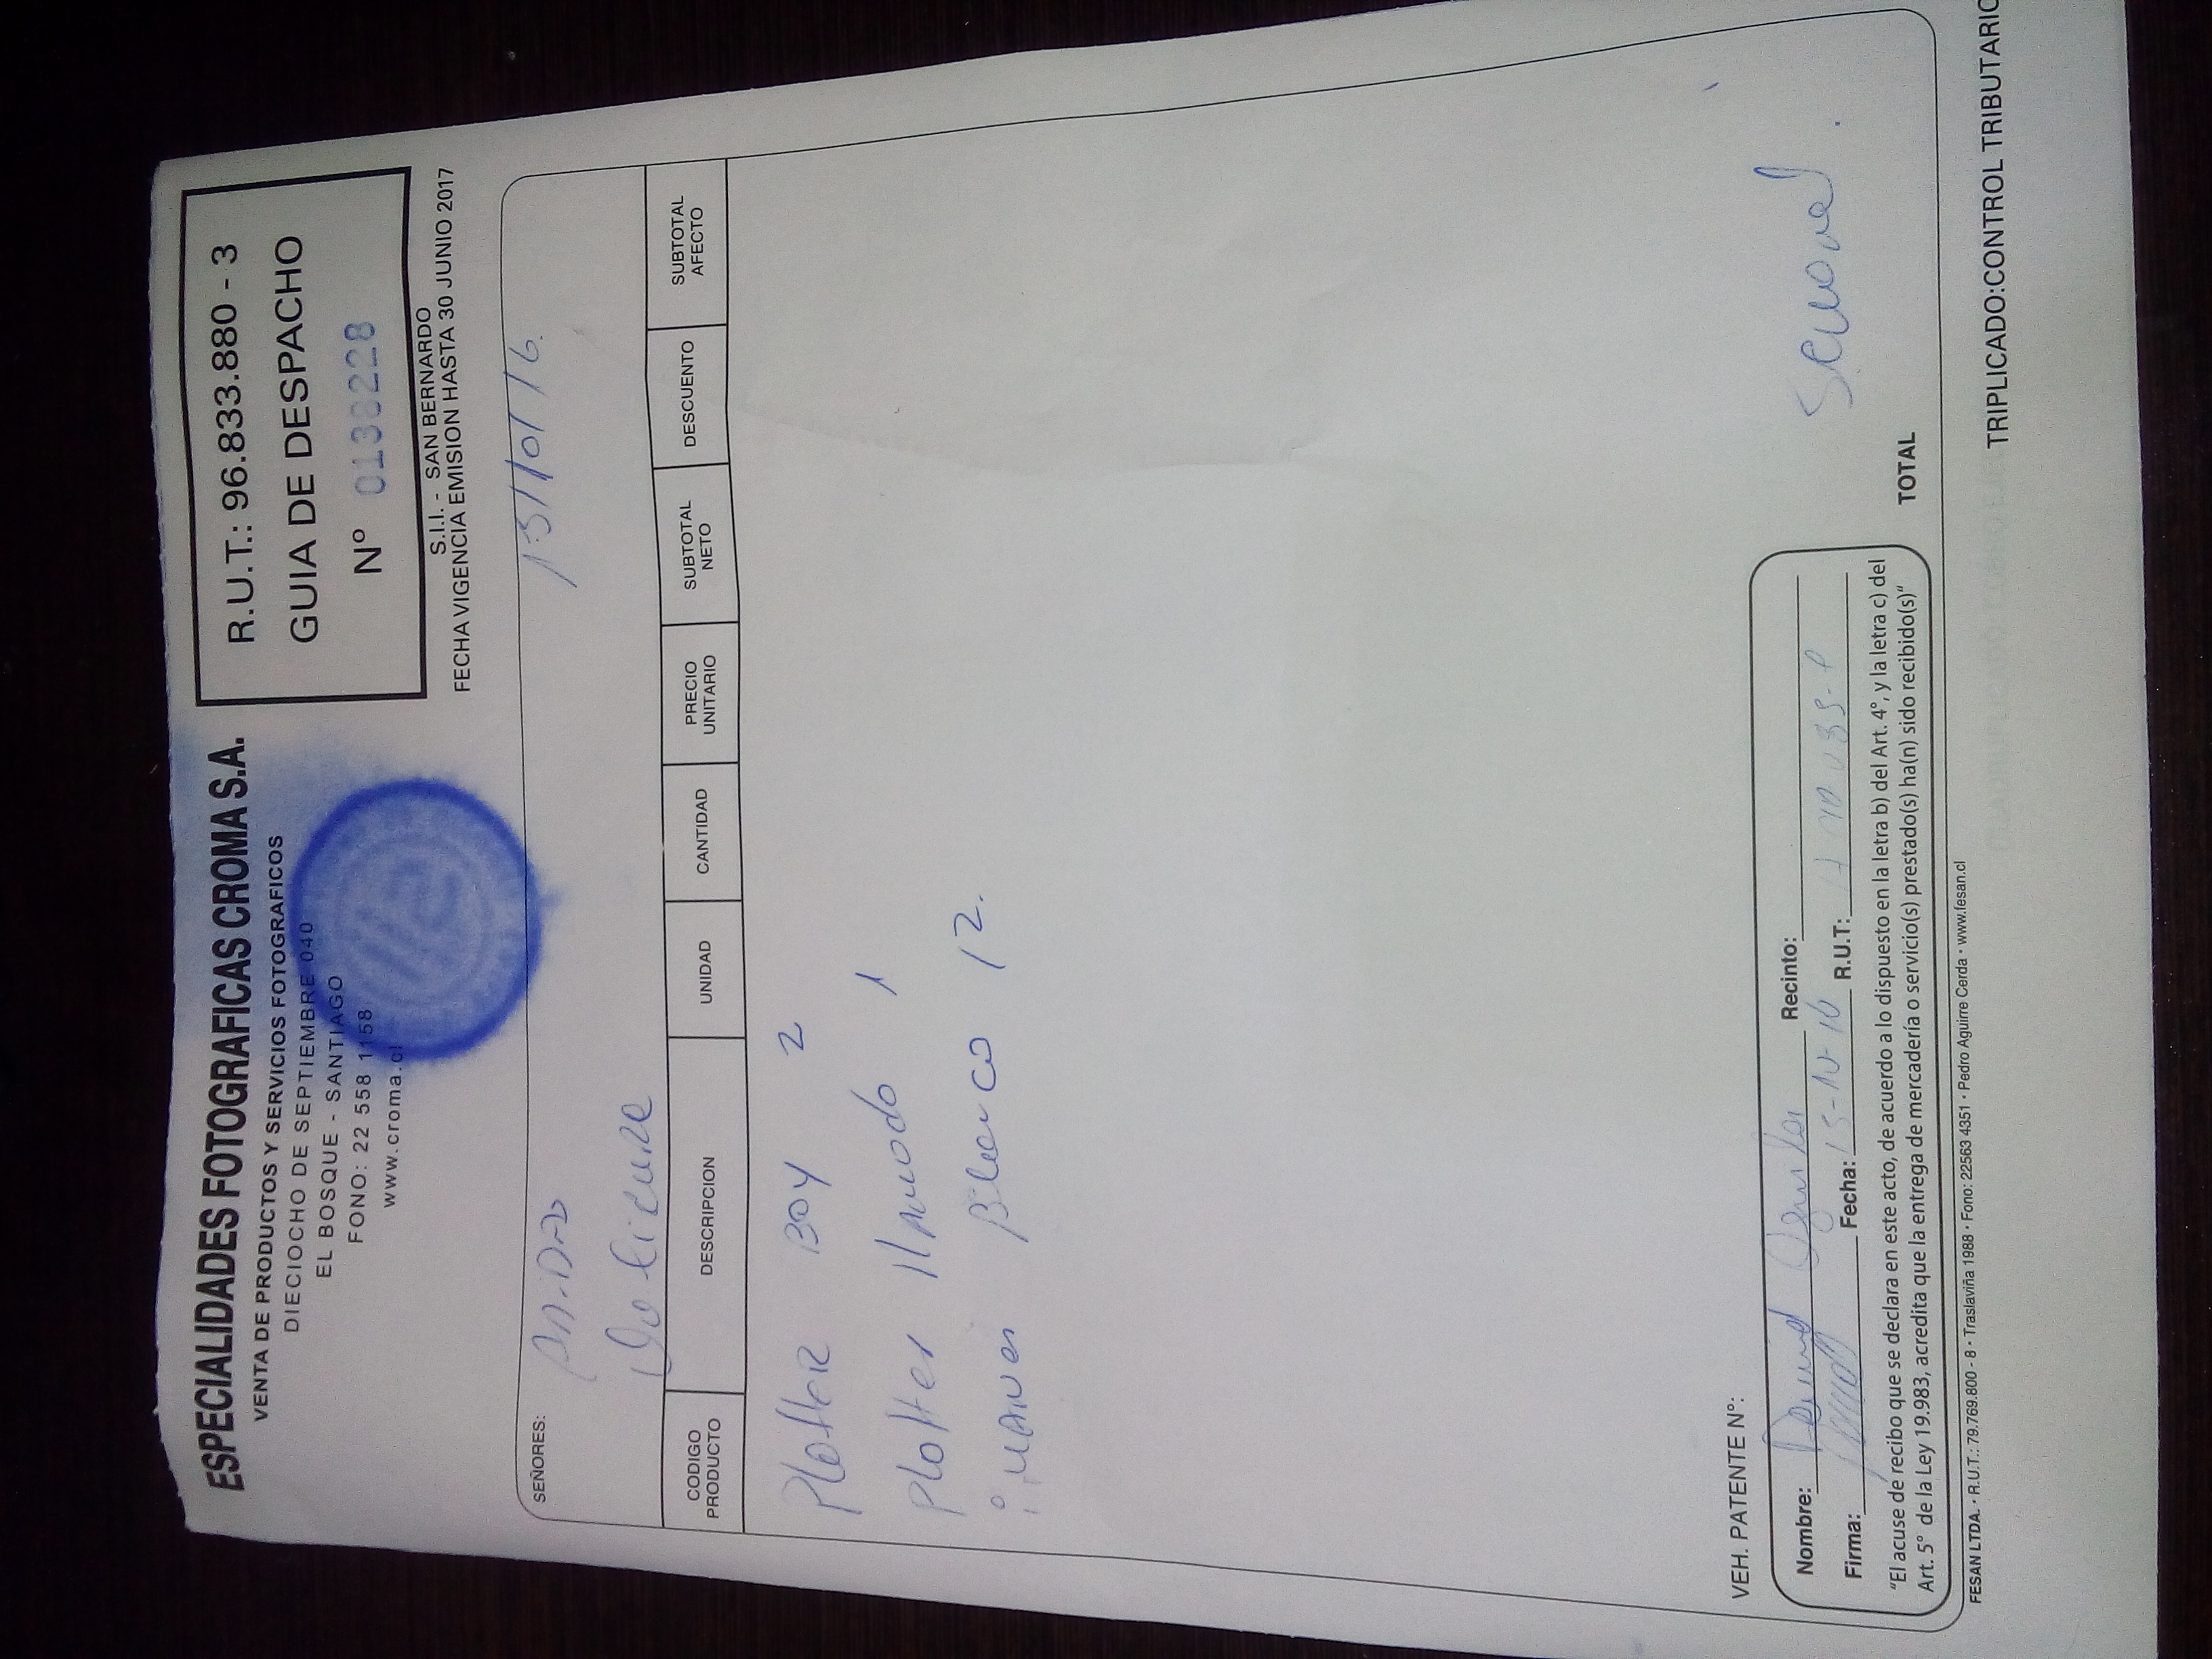 ESPECIALIDADES FOTOGRAFICAS CROMA S.A.
VENTA DE PRODUCTOS Y SERVICIOS FOTOGRAFICOS
DIECIOCHO DE SEPTIEMBRE 040
EL BOSQUE - SANTIAGO
FONO: 22 558 1158
www.croma.cl
R.U.T.: 96.833.880 - 3
GUIA DE DESPACHO
Nº 0138228
S.I.I. - SAN BERNARDO
FECHA VIGENCIA EMISION HASTA 30 JUNIO 2017
SEÑORES:
13/10/16.
CODIGO PRODUCTO DESCRIPCION UNIDAD CANTIDAD PRECIO UNITARIO SUBTOTAL NETO DESCUENTO SUBTOTAL AFECTO
Plotter BOY 2
Plotter 1
iMANes Blanco 12.
VEH. PATENTE Nº:
Nombre: David Aguila Recinto:
Firma: Fecha: 13-10-16 R.U.T:
"El acuse de recibo que se declara en este acto, de acuerdo a lo dispuesto en la letra b) del Art. 4°, y la letra c) del
Art. 5° de la Ley 19.983, acredita que la entrega de mercadería o servicio(s) prestado(s) ha(n) sido recibido(s)"
Semanal.
TOTAL
FESAN LTDA. · R.U.T.: 79.769.800 - 8 · Traslaviña 1988 · Fono: 22563 4351 · Pedro Aguirre Cerda · www.fesan.cl
TRIPLICADO:CONTROL TRIBUTARIO